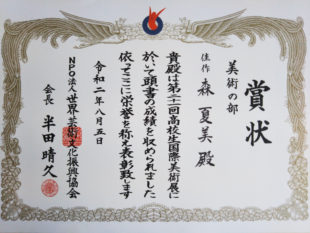 賞状
美術の部
佳作 森 夏美 殿
貴殿は第二十一回高校生国際美術展に
於いて頭書の成績を収められました
依ってここに栄誉を称え表彰致します
令和二年八月五日
NPO法人世界芸術文化振興協会
会長 半田晴久